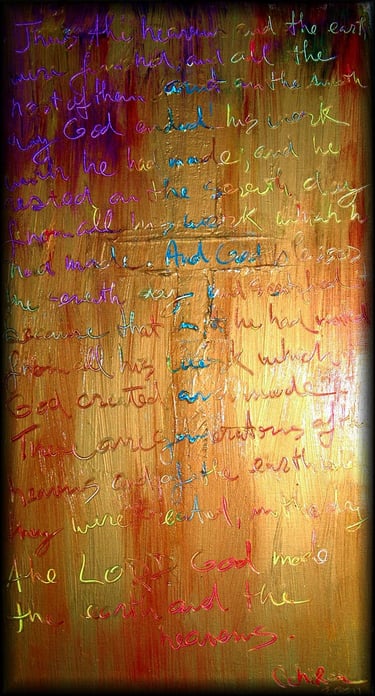 Thus the heavens and the earth
were finished, and all the
host of them. And on the seventh
day God ended his work
which he had made; and he
rested on the seventh day
from all his work which h
had made. And God blessed
the seventh day, and sanctified it
because that in it he had rested
from all his work which
God created and made.
These are the generations of the
heavens and of the earth when
they were created, in the day
the LORD God made
the earth and the
heavens.